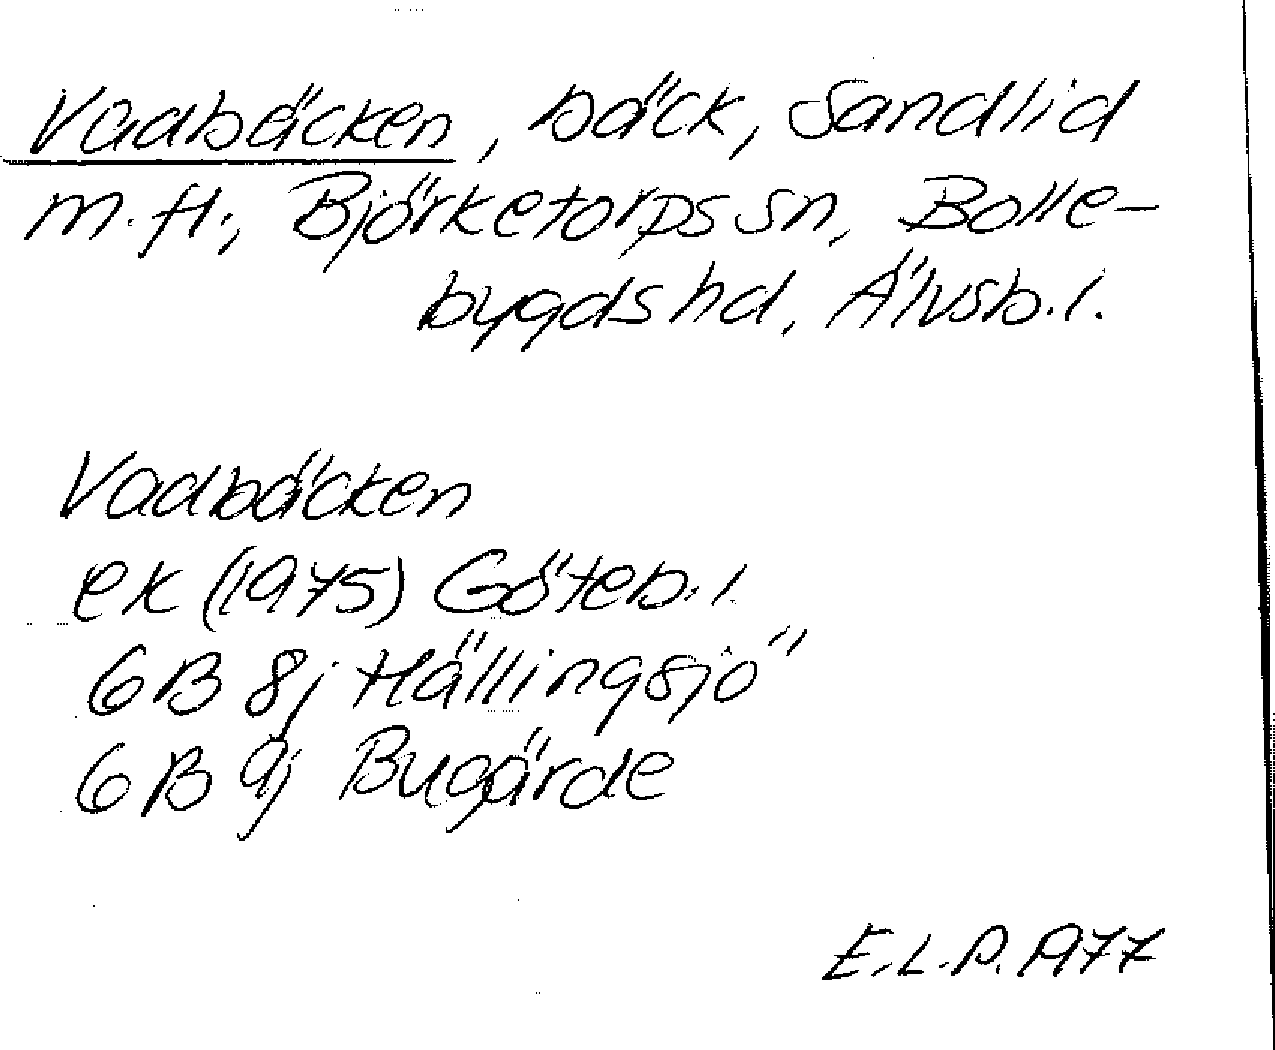 Vadbäcken, bäck, Sandlid
m.fl., Björketorps sn, Bolle-
bygds hd, Älvsb.l.
Vadbäcken
ek (1975) Göteb.l.
6B 8j Hällingsjö
6B 9j Bugärde
E.L.P. 1977